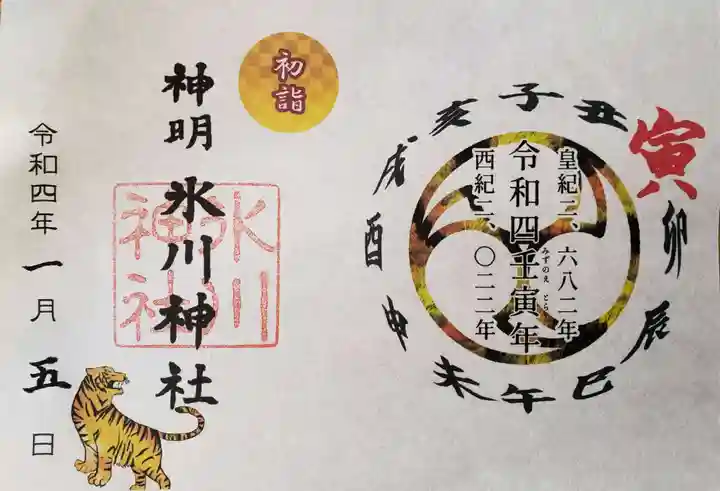 子
丑
寅
卯
辰
巳
午
未
申
酉
戌
亥
皇紀二、六八二年
令和四壬寅年
みずのえ とら
西紀二、〇二二年
初詣
神明氷川神社
氷川
神社
令和四年一月五日